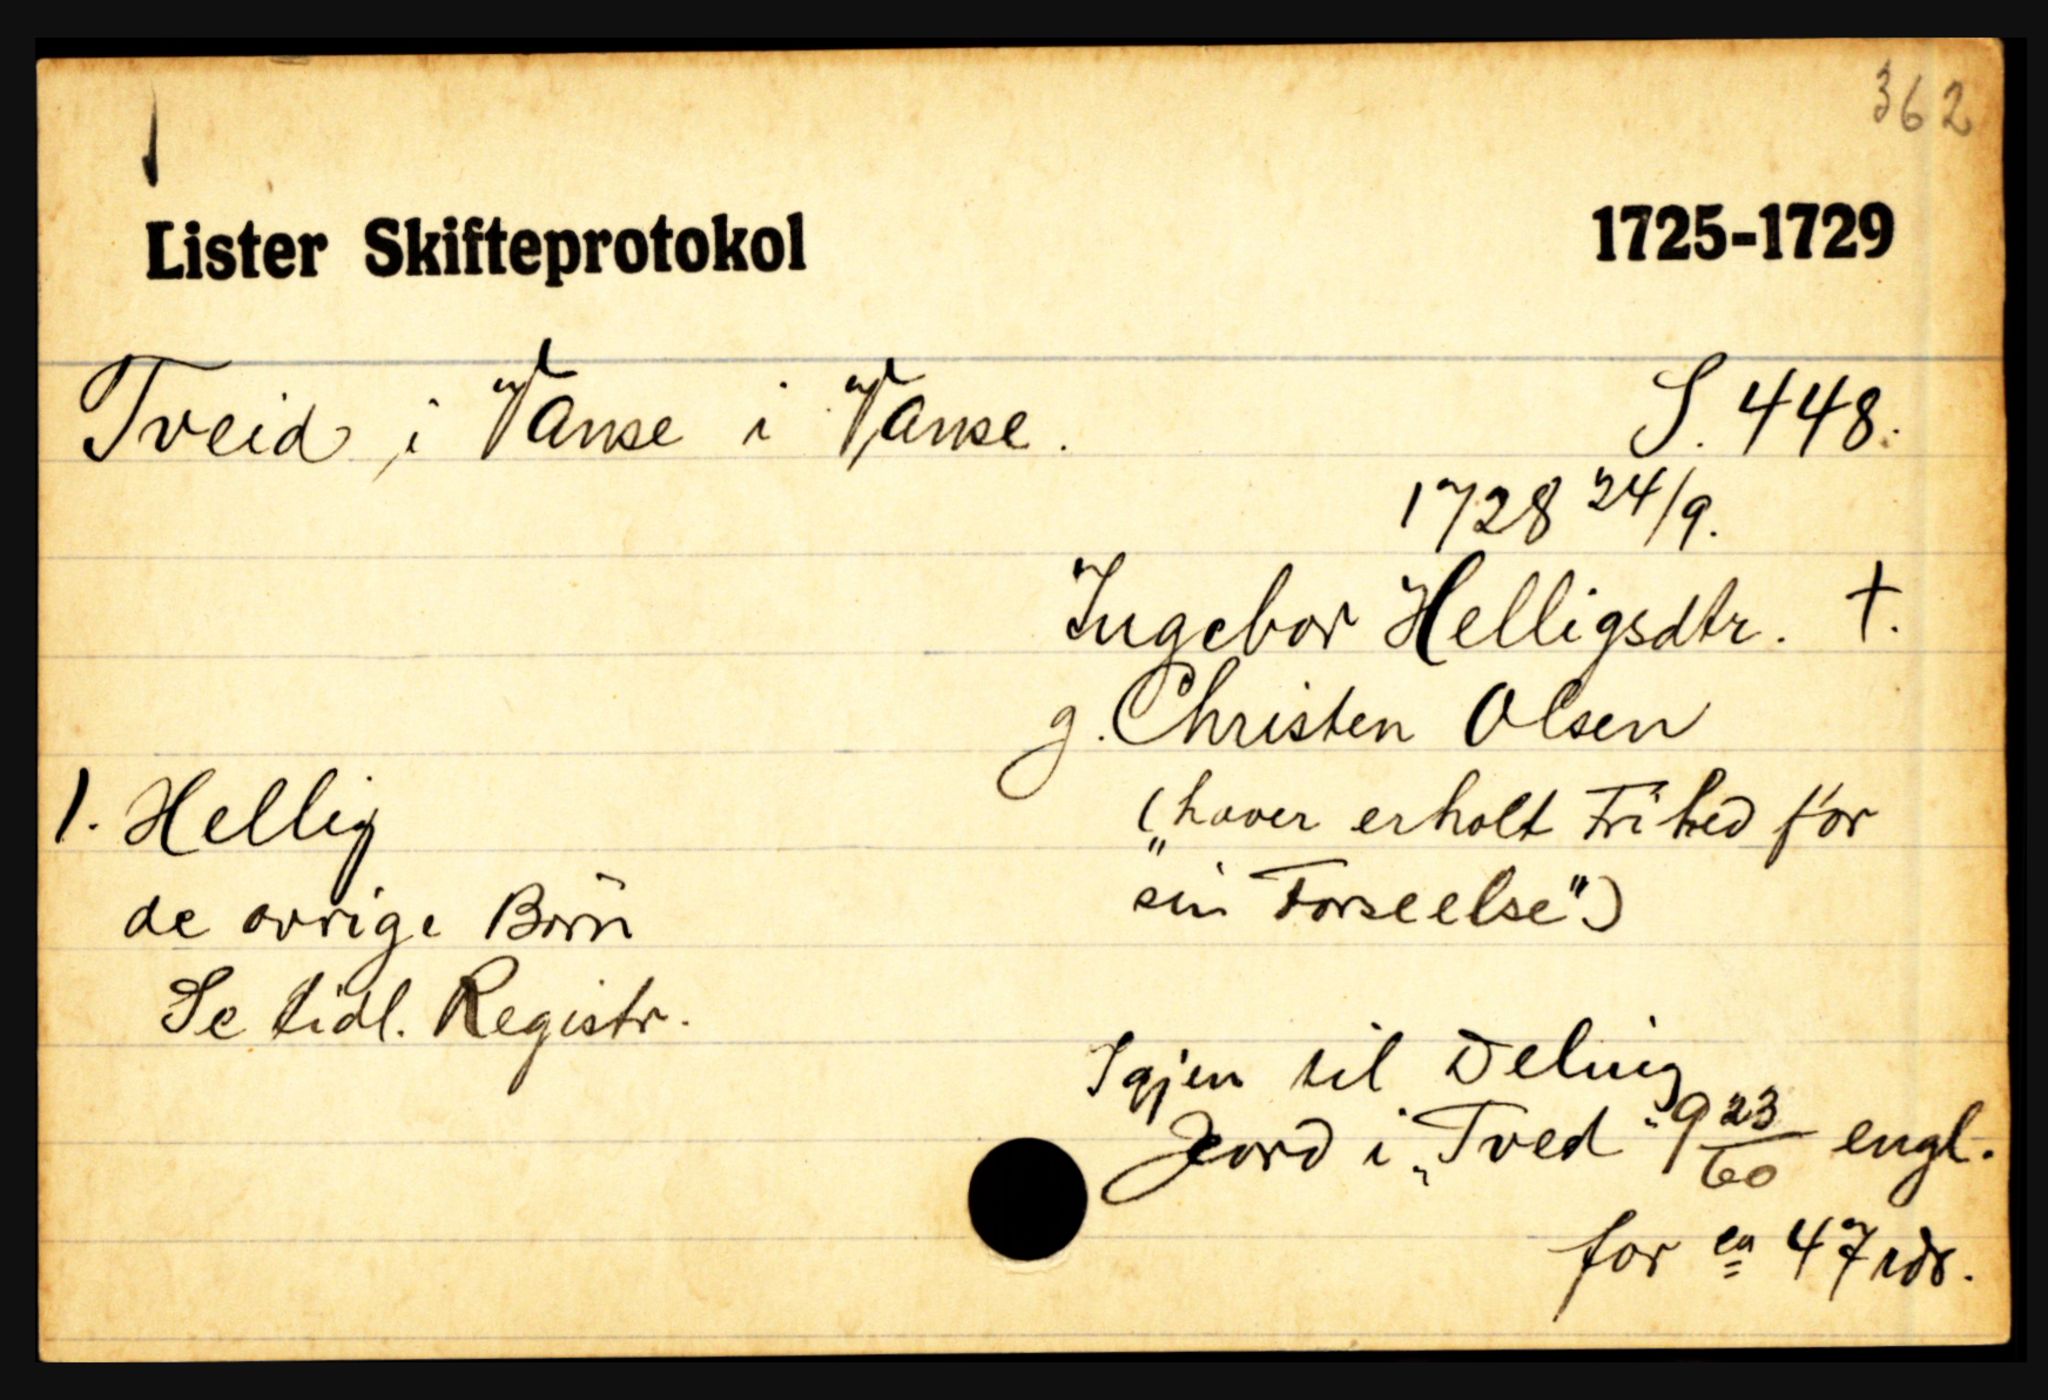 362
Lister Skifteprotokol 1725-1729
Tveid i Vanse i Vanse. S. 448.
1728 24/9.
Ingebor Helligsdtr. †.
g. Christen Olsen
1. Hellig
("haver erholt Frihed for
sin Forseelse")
de øvrige Børn
Se tidl. Registr.
Igjen til Deling
Jord i "Tved" 9 23/60 engl.
for ca 47 rdr.